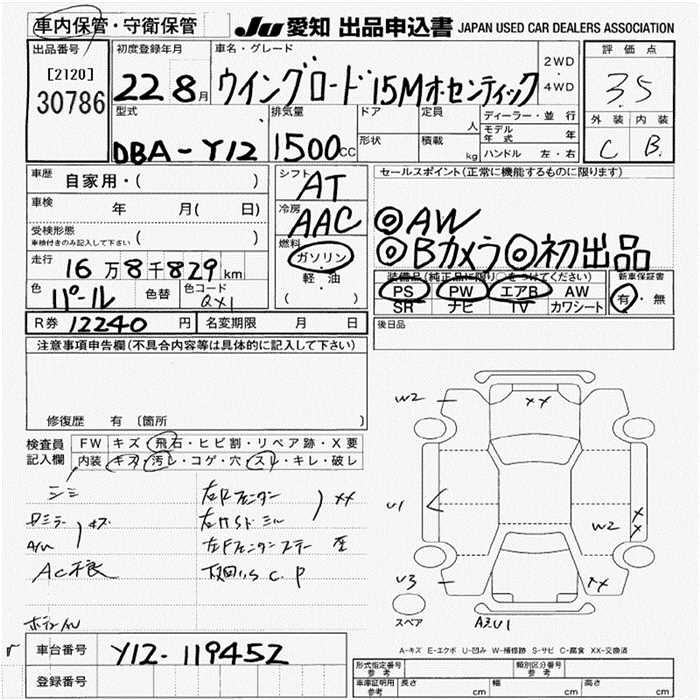 車内保管・守衛保管 JU 愛知 出品申込書 JAPAN USED CAR DEALERS ASSOCIATION
出品番号 初度登録年月 車名・グレード 評価点
[2120] 30786
22 8月 ウイングロード 15Mオーセンティック 2WD・4WD
3.5
外装 内装
C B
型式 排気量 ドア 定員 人 ディーラー・並行
DBA-Y12 1500cc 形状 積載 kg モデル年式 年
ハンドル 左・右
車歴 自家用・( )
シフト AT
セールスポイント(正常に機能するものに限ります)
車検 年 月( 日)
冷房 AAC
◎AW
◎Bカメラ◎初出品
受検形態 車検付きのみ記入して下さい ( )
燃料 ガソリン・軽油 ( )
走行 16万8千829km
装備品(純正品に限り○をつけてください) 新車保証書
PS PW エアB AW 有・無
SR ナビ TV カワシート
色 パール 色替 色コード QX1
R券 12240円 名変期限 月 日
後日品
注意事項申告欄(不具合内容等は具体的に記入して下さい)
修復歴 有〔箇所 〕
検査員記入欄
FW キズ・飛石・ヒビ割・リペア跡・X要
内装 キズ・汚レ・コゲ・穴・スレ・キレ・破レ
シミ
キズ
A/W
AC不良
XX
W2
XX
U1
W2
XX
U3
XX
A3U1
スペア
A-キズ E-エクボ U-凹み W-補修跡 S-サビ C-腐食 XX-交換済
車台番号 Y12-119452
登録番号
形式指定番号 参考 類別区分番号 参考
車庫証明用 参考 長さ cm 幅 cm 高さ cm